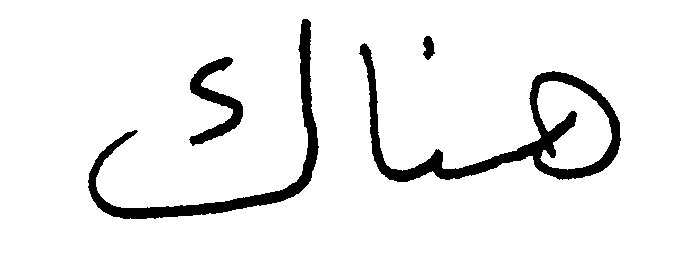 هناك